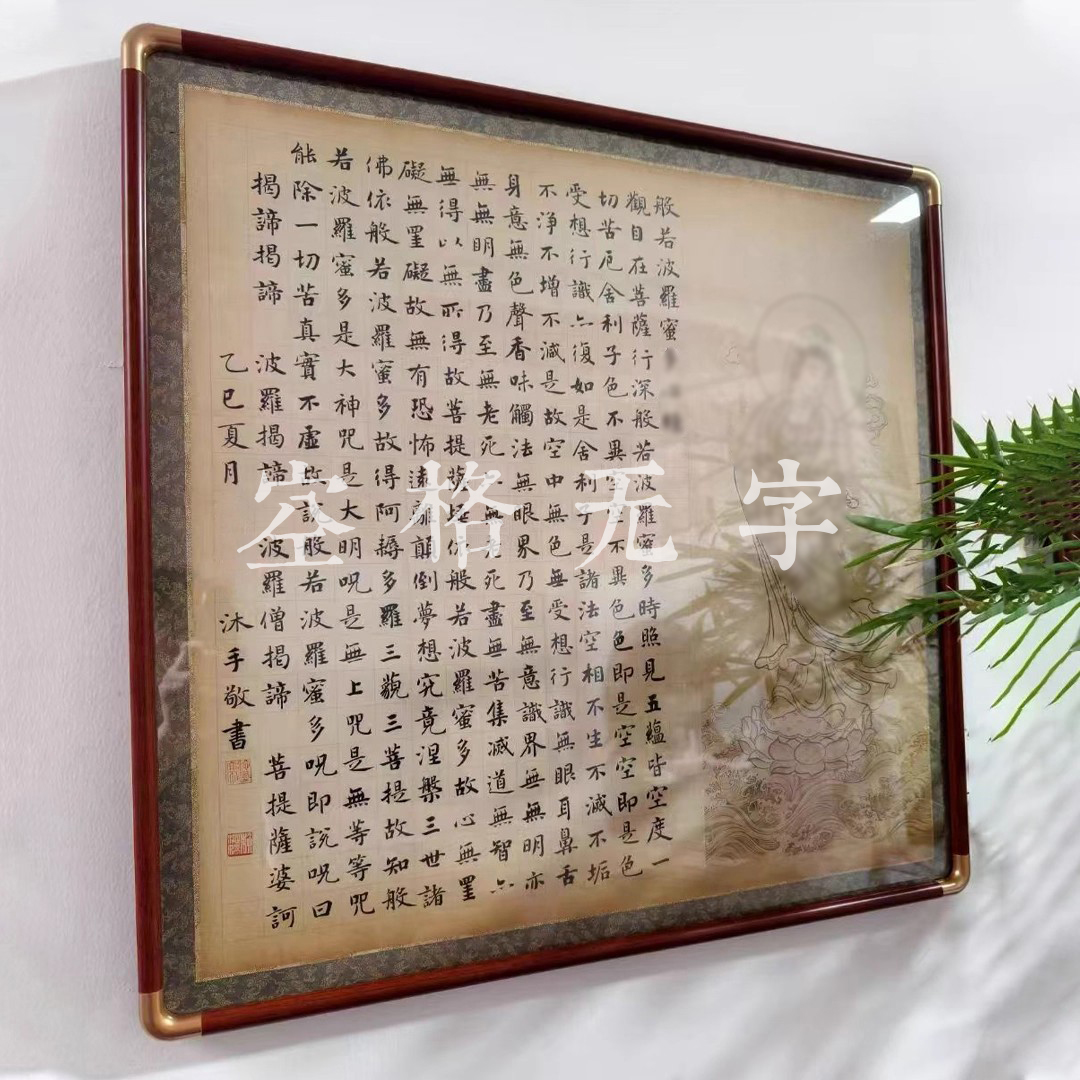 般若波羅蜜
觀自在菩薩行深般若波羅蜜多時照見五蘊皆空度一
切苦厄舍利子色不異空空不異色色即是空空即是色
受想行識亦復如是舍利子是諸法空相不生不滅不垢
不淨不增不減是故空中無色無受想行識無眼耳鼻舌
身意無色聲香味觸法無眼界乃至無意識界無無明亦
無無明盡乃至無老死亦無老死盡無苦集滅道無智亦
無得以無所得故菩提薩埵依般若波羅蜜多故心無罣
礙無罣礙故無有恐怖遠離顛倒夢想究竟涅槃三世諸
佛依般若波羅蜜多故得阿耨多羅三藐三菩提故知般
若波羅蜜多是大神咒是大明咒是無上咒是無等等咒
能除一切苦真實不虛故說般若波羅蜜多呪即說呪曰
揭諦揭諦 波羅揭諦 波羅僧揭諦 菩提薩婆訶
乙巳夏月 沐手敬書
空格无字